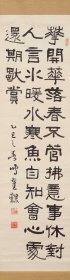 華開華落春不管拂意事休對
人言水暖水寒魚自知會心處
還期獨賞
乙巳之春